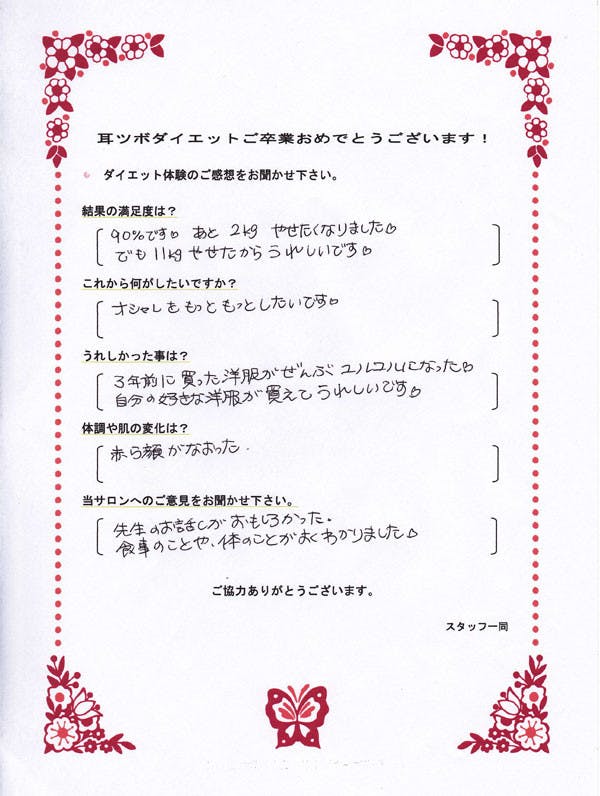 耳ツボダイエットご卒業おめでとうございます！
ダイエット体験のご感想をお聞かせ下さい。
結果の満足度は？
90%です♡ あと 2kg やせたくなりました♡
でも 11kg やせたから うれしいです♡
これから何がしたいですか？
オシャレをもっともっとしたいです♡
うれしかった事は？
3年前に買った洋服がぜんぶ ユルユルになった♡
自分の好きな洋服が買えて うれしいです♡
体調や肌の変化は？
赤ら顔がなおった.
当サロンへのご意見をお聞かせ下さい。
先生のお話しがおもしろかった。
食事のことや、体のことがよくわかりました♡
ご協力ありがとうございます。
スタッフ一同